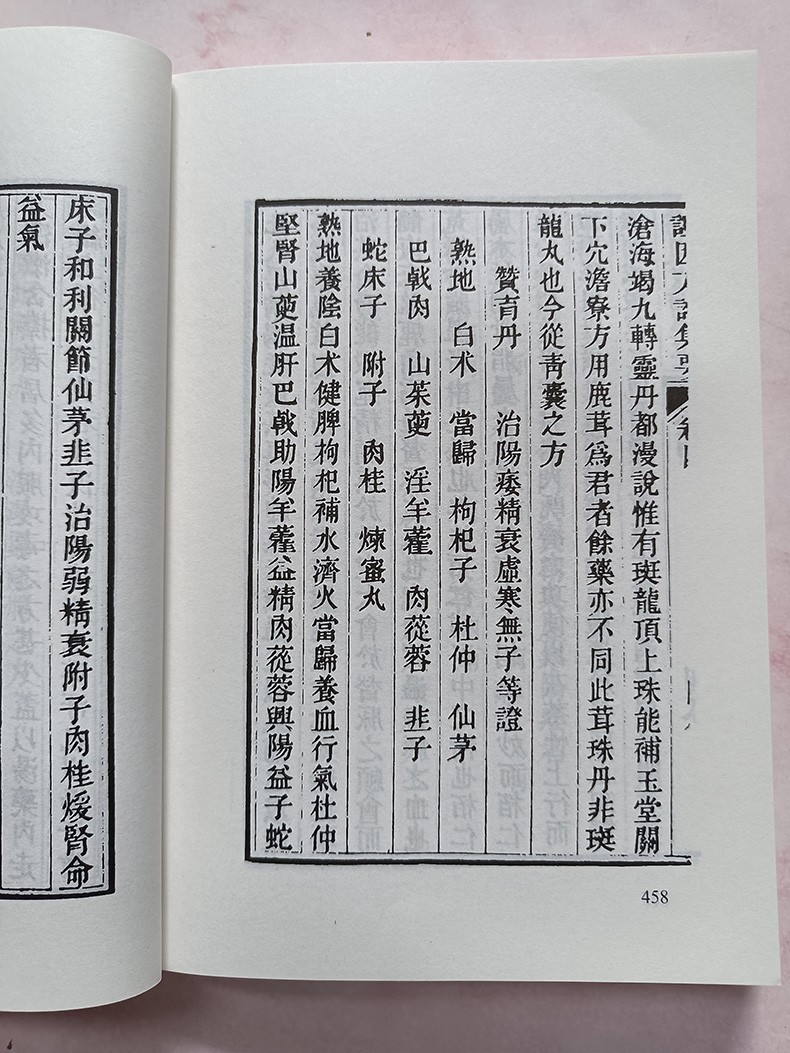 證因方論集要 卷四
滄海竭九轉靈丹都漫說惟有斑龍頂上珠能補玉堂關
下穴澹寮方用鹿茸爲君者餘藥亦不同此茸珠丹非斑
龍丸也今從靑囊之方
贊育丹 治陽痿精衰虛寒無子等證
熟地 白术 當歸 枸杞子 杜仲 仙茅
巴戟肉 山茱萸 淫羊藿 肉蓯蓉 韭子
蛇床子 附子 肉桂 煉蜜丸
熟地養陰白术健脾枸杞補水濟火當歸養血行氣杜仲
堅腎山萸温肝巴戟助陽羊藿益精肉蓯蓉興陽益子蛇
458
床子和利關節仙茅韭子治陽弱精衰附子肉桂煖腎命
益氣